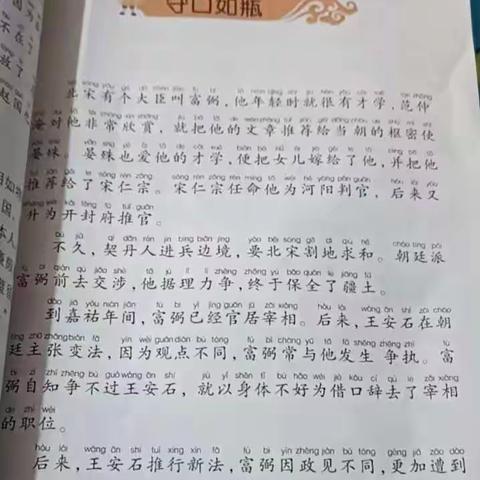 守口如瓶
北宋有个大臣叫富弼，他年轻时就很有才学，范仲
淹对他非常欣赏，就把他的文章推荐给当朝的枢密使
晏殊。晏殊也爱他的才学，便把女儿嫁给了他，并把他
推荐给了宋仁宗。宋仁宗任命他为河阳判官，后来又
升为开封府推官。
不久，契丹人进兵边境，要北宋割地求和。朝廷派
富弼前去交涉，他据理力争，终于保全了疆土。
到嘉祐年间，富弼已经官居宰相。后来，王安石在朝
廷主张变法，因为观点不同，富弼常与他发生争执。富
弼自知争不过王安石，就以身体不好为借口辞去了宰相
的职位。
后来，王安石推行新法，富弼因政见不同，更加遭到